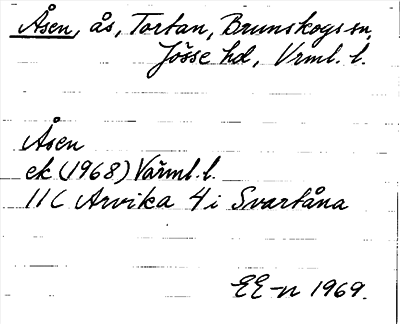 Åsen, ås, Tortan, Brunskogs sn,
Jösse hd, Vrml. l.
Åsen
ek (1968) Värml. l.
11C Arvika 4 i Svartåna
EE-n 1969.